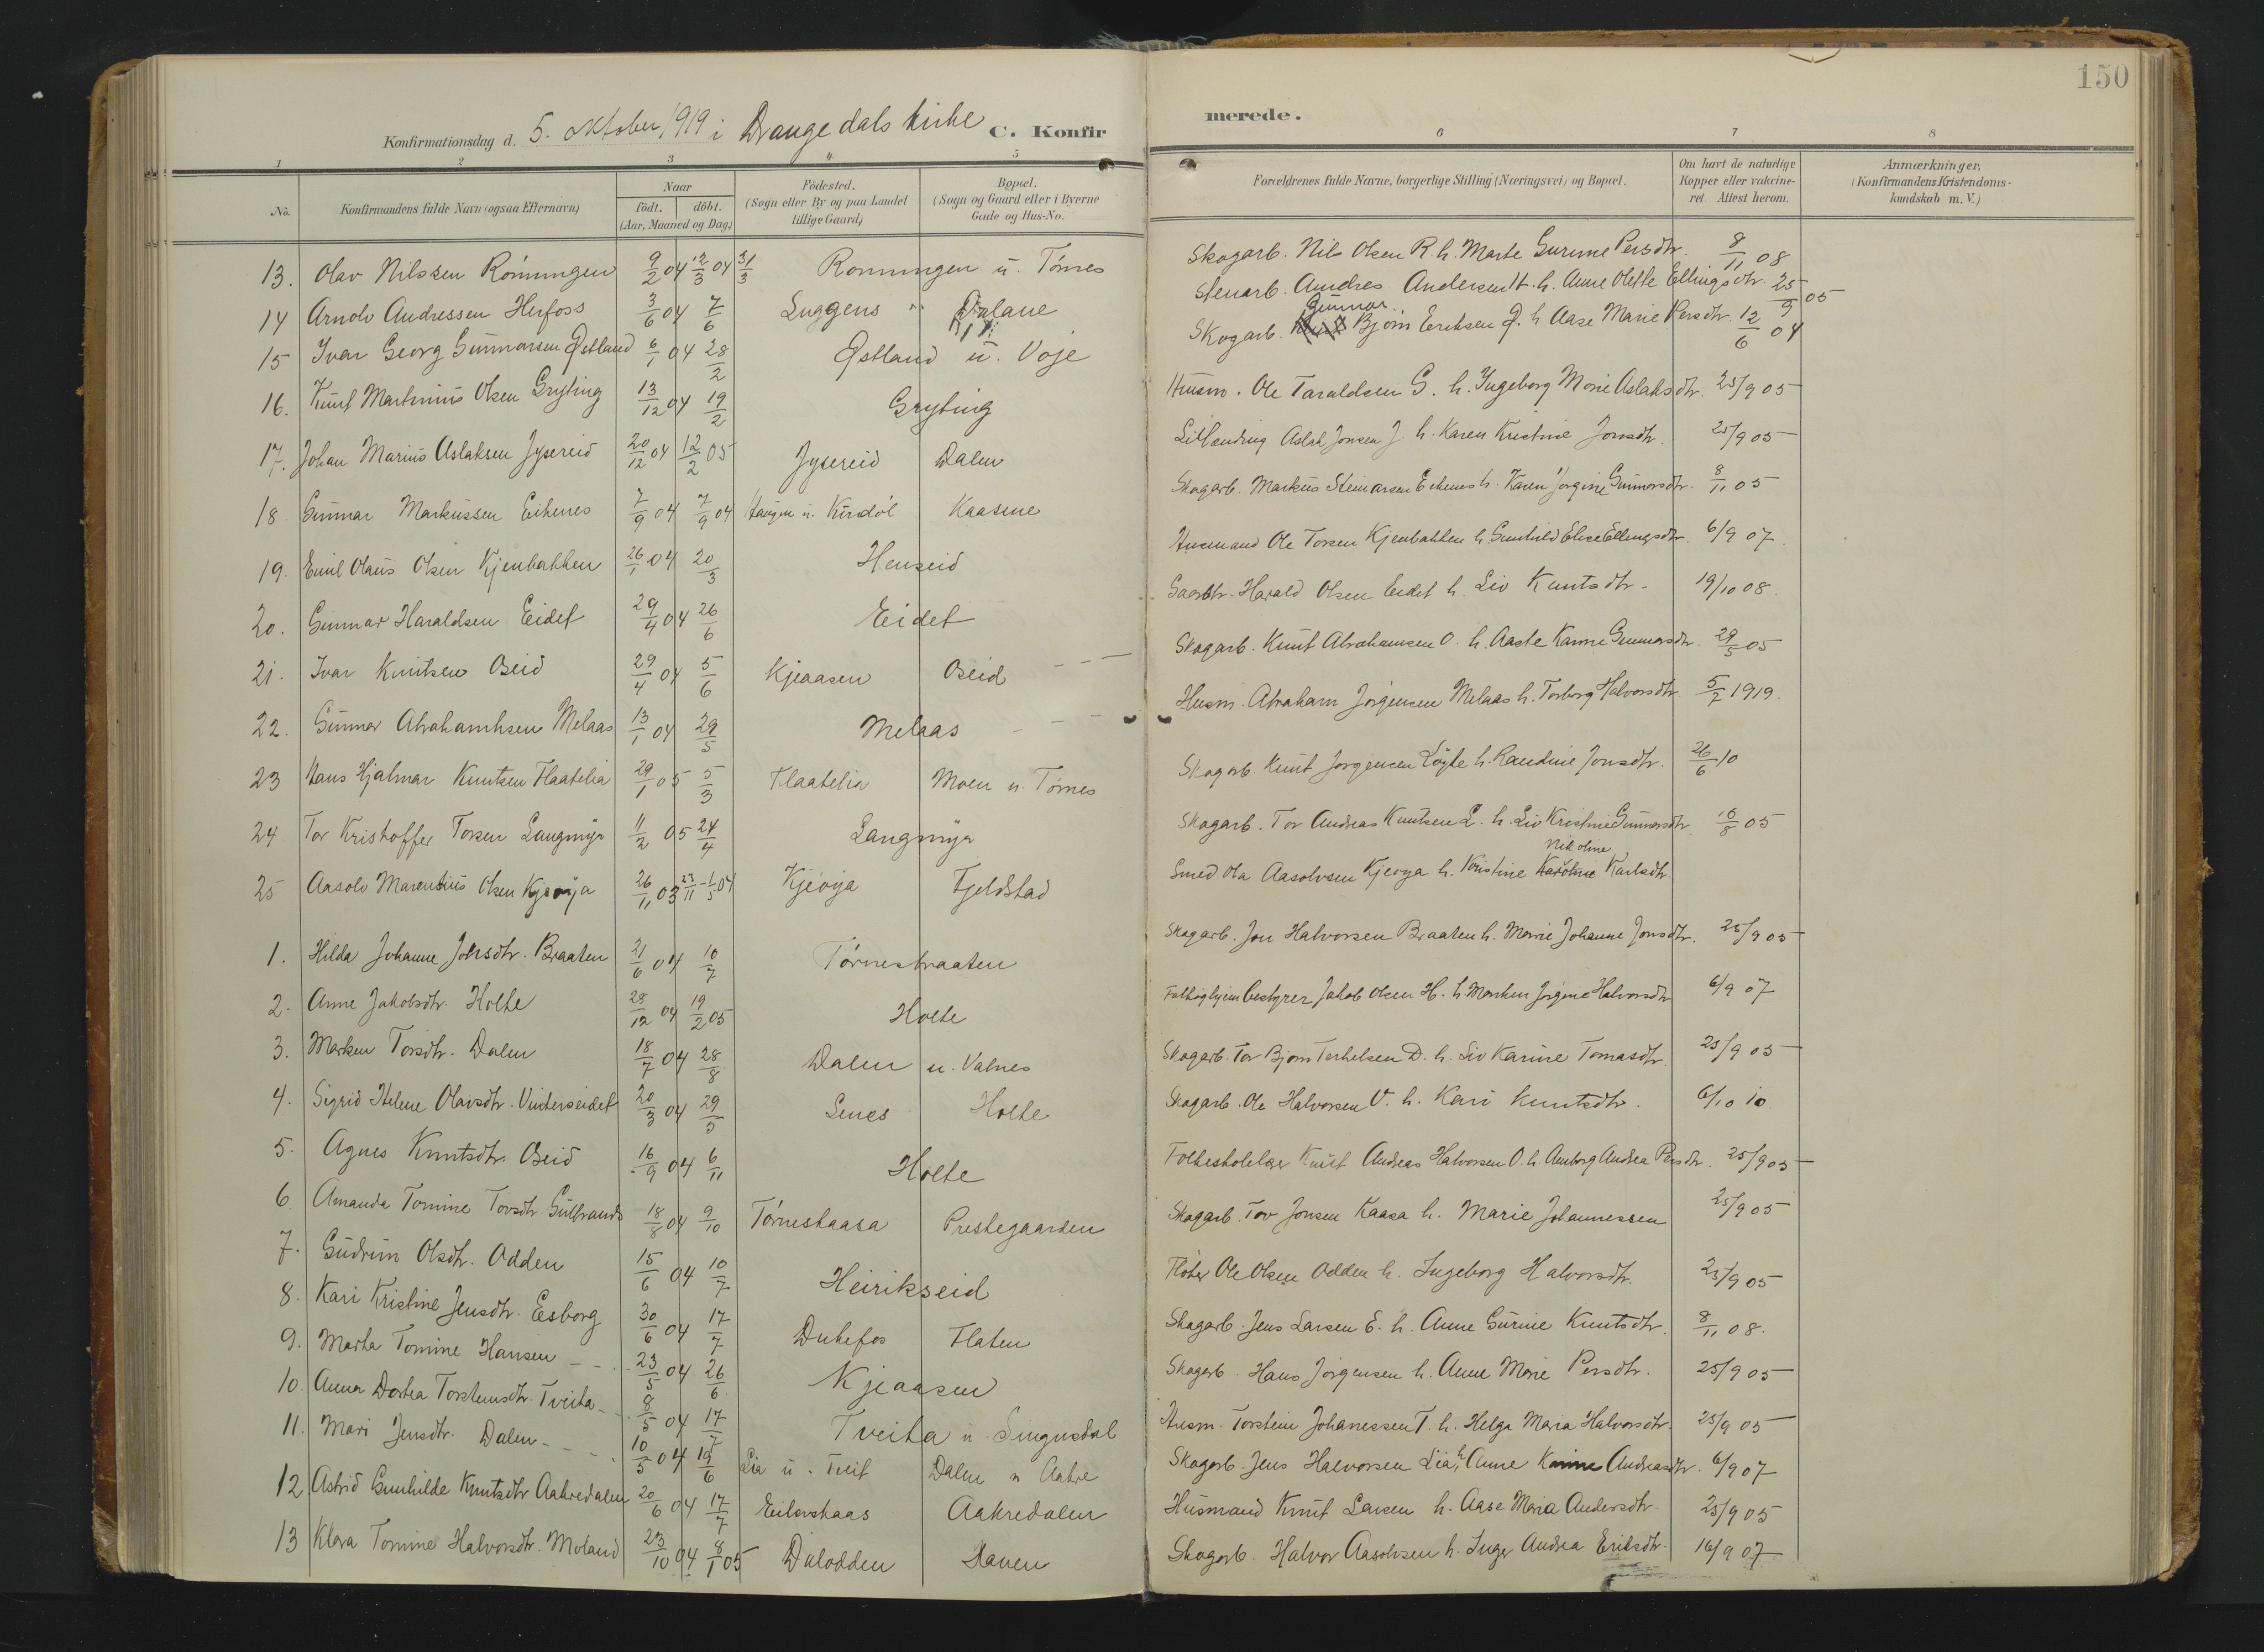 150
Konfirmationsdag d. 5. oktober 1919 i Drangedals kirke C. Konfir
merede.
1 2 3 4 5 6 7 8
No. Konfirmandens fulde Navn (ogsaa Efternavn) Naar födt. döbt. (Aar, Maaned og Dag) Födested. (Sogn eller By og paa Landet tillige Gaard) Bopæl. (Sogn og Gaard eller i Byerne Gade og Hus-No. Forældrenes fulde Navne, borgerlige Stilling (Næringsvei) og Bopæl. Om havt de naturlige Kopper eller vakcineret. Attest herom. Anmærkninger, (Konfirmandens Kristendomskundskab m. V.)
13. Olav Nilssen Rönningen 9/2 04 12/3 04 31/3 Ronningen u. Törnes Skogarb. Nils Olsen R. h. Marte Gurine Persdtr. 8/11 08
14 Arnolv Andressen Herfoss 3/6 04 7/6 Luggens " Dalane Stenarb. Andres Andersen H. h. Anne Olette Ellingsdtr. 25/9 05
15 Ivar Georg Gunnarsen Østland 6/1 04 28/2 Østland u. Voje Skogarb. Gunnar Björn Eriksen Ø. h. Aase Marie Persdtr. 12/6 04
16. Knut Martinius Olsen Gryting 13/12 04 19/2 Gryting Husm. Ole Taraldsen G. h. Ingeborg Marie Aslaksdtr. 25/9 05
17. Johan Marius Aslaksen Jysereid 20/12 04 12/2 05 Jysereid Dalen Aslak Jonsen J. h. Karen Kristine Jonsdtr. 25/9 05
18 Gunnar Markussen Eikenes 7/9 04 7/9 04 Haugen u. Kurdöl Kaasene Skogarb. Markus Steinarsen Eikenes h. Karen Jörgine Gunnarsdtr. 8/11 05
19. Emil Olaus Olsen Kjenbakken 26/1 04 20/3 Henseid Husmand Ole Torsen Kjenbakken h. Gunhild Elise Ellingsdtr. 6/9 07.
20. Gunnar Haraldsen Eidet 29/4 04 26/6 Eidet Gaardbr. Harald Olsen Eidet h. Liv Knutsdtr. 19/10 08.
21. Ivar Knutsen Oseid 29/4 04 5/6 Kjeaasen Oseid Skogarb. Knut Abrahamsen O. h. Aaste Karine Gunnarsdtr. 29/5 05
22. Gunnar Abrahamsen Melaas 13/1 04 29/5 Melaas Husm. Abraham Jörgensen Melaas h. Torborg Halvorsdtr. 5/7 1919.
23 Hans Hjalmar Knutsen Flaatelia 29/1 05 5/3 Flaatelia Moen u. Törnes Skogarb. Knut Jorgensen Löyte h. Randine Jonsdtr. 26/6 10
24 Tor Kristoffer Torsen Langmyr 11/2 05 24/4 Langmyr Skogarb. Tor Andreas Knutsen L. h. Liv Kristine Gunnarsdtr. 16/8 05
25 Aasolv Marentius Olsen Kjeøya 26/11 03 23/11 - 1/5 04 Kjeöya Fjeldstad Smed Ola Aasolvsen Kjeoya h. Kristine Karoline Nikoline Karlsdtr.
1. Hilda Johanne Jonsdtr. Braaten 21/6 04 10/7 Törnesbraaten Skogarb. Jon Halvorsen Braaten h. Marie Johanne Jonsdtr. 25/9 05
2. Anne Jakobsdtr. Holte 28/12 04 19/2 05 Holte Fattighjem bestyrer Jakob Olsen H. h. Marken Jörgine Halvorsdtr 6/9 07
3. Marken Torsdtr. Dalen 18/7 04 28/8 Dalen u. Valnes Skogarb. Tor Bjorn Terkelsen D. h. Liv Karine Tomasdtr. 25/9 05
4. Sigrid Helene Olavsdtr. Vinterseidet 20/3 04 29/5 Lenes Holte Skogarb. Ole Halvorsen V. h. Kari Knutsdtr. 6/10 10
5. Agnes Knutsdtr. Oseid 16/9 04 6/11 Holte Folkeskolelær Knut Andreas Halvorsen O. h. Amborg Andrea Persdtr. 25/9 05
6. Amanda Tomine Torsdtr. Gulbrands 18/8 04 9/10 Törneskaasa Prestegaarden Skogarb. Tov Jonsen Kaasa h. Marie Johannessen 25/9 05
7. Gudrun Olsdtr. Odden 15/6 04 10/7 Heirikseid Flöter Ole Olsen Odden h. Ingeborg Halvorsdtr. 25/9 05
8. Kari Kristine Jensdtr. Esborg 30/6 04 17/7 Dukefos Flaten Skogarb. Jens Larsen E. h. Anne Gurine Knutsdtr. 8/11 08.
9. Marta Tomine Hansen 23/5 04 26/6 Kjeaasen Skogarb. Hans Jörgensen h. Anne Marie Persdtr. 25/9 05
10. Anna Dortea Torsteinsdtr. Tveita 8/5 04 17/7 Tveita u Sengusdal Husm. Torstein Johanessen T. h. Helga Maria Halvorsdtr. 25/9 05
11. Mari Jensdtr. Dalen 10/5 04 19/6 Lia u. Tveit Dalen u Aakre Skogarb. Jens Halvorsen Lia, h. Anne Karine Andreasdtr. 6/9 07
12 Astrid Gunhilde Knutsdtr Aakredalen 20/6 04 17/7 Eilevskaas Aakredalen Husmand Knut Larsen h. Aase Maria Andersdtr. 25/9 05
13 Klara Tomine Halvorsdtr. Moland 23/10 04 8/1 05 Dalodden Daven Skogarb. Halvor Aasolvsen h. Inger Andrea Eriksdtr. 16/9 07